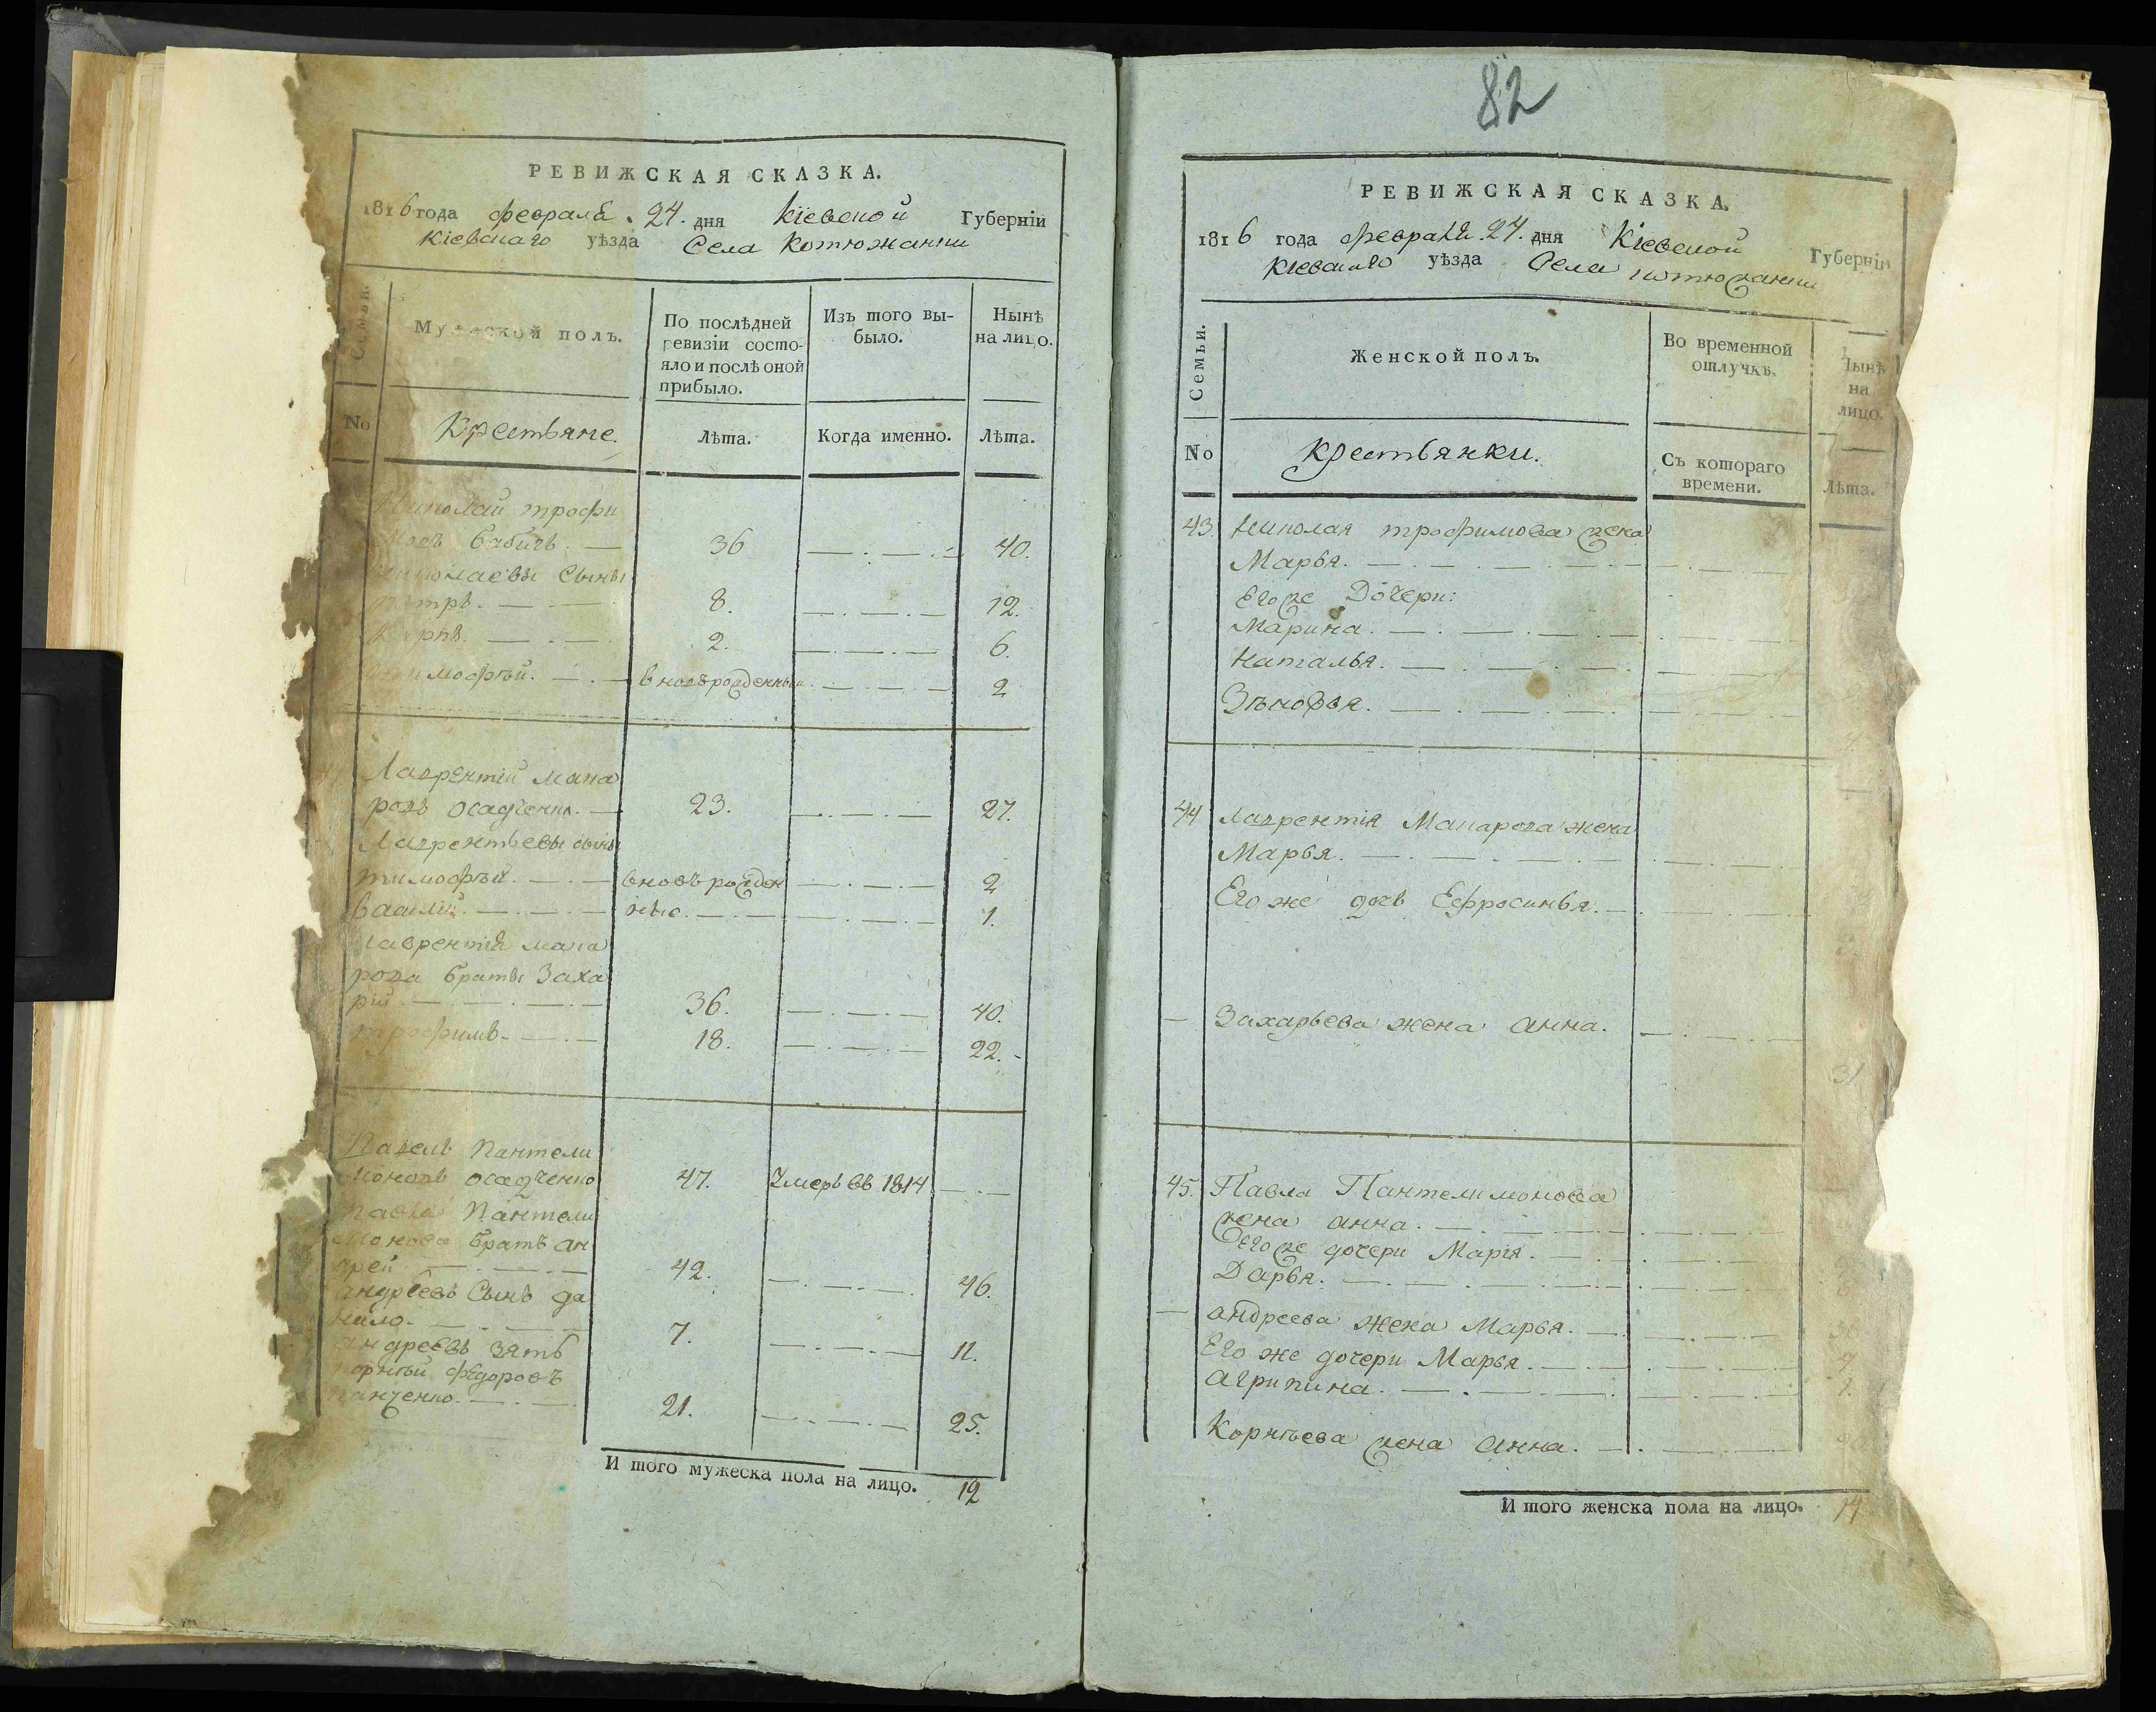 РЕВИЖСКАЯ СКАЗКА.
1816 года февраля 24. дня Кіевской Губерніи
Кіевскаго уѣзда Села Котюжанки
Семьи.
Мужеской полъ.
По послѣдней ревизіи состо-
яло и послѣ оной прибыло.
Изъ того вы-
было.
Нынѣ
на лицо.
No
Крестьяне.
Лѣта.
Когда именно.
Лѣта.
Николай трофи
мовъ бабичь. 36 40.
Николаевы Сыны
петръ. 8. 12.
Карпъ. 2. 6.
тимофѣй. вновьрожденный 2
Лаврентій мака
ровъ осадченко. 23. 27.
Лаврентьевы сыны
тимофѣй. вновьрожден 2
василій. ные. 1.
Лаврентія мака
рова браты Заха
рій 36. 40.
трофимъ. 18. 22.
Павелъ Пантели
моновъ осадченко 47. Умеръ въ 1814
Павла Пантели
монова братъ ан
дрей 42. 46.
андреевъ Сынъ да
нило. 7. 11.
андреевъ зять
корнѣй федоровъ
панченко. 21. 25.
И того мужеска пола на лицо. 12
82
РЕВИЖСКАЯ СКАЗКА.
1816 года февраля 24. дня Кіевской Губерніи
Кіевскаго уѣзда Села Котюжанки
Семьи.
Женской полъ.
Во временной
отлучкѣ.
Нынѣ
на
лицо.
No
Крестьянки.
Съ котораго
времени.
Лѣта.
43. Николая трофимова жена
Марья.
Его же Дочери:
Марина.
Наталья.
Зѣновья.
44 Лаврентія Макарова жена
Марья.
Его же дочь Ефросинья.
Захарьева жена анна.
31
45. Павла Пантелимонова
жена анна.
Его же дочери Марія.
Дарья.
андреева жена Марья.
Его же дочери Марья.
агрипина.
Корнѣева жена анна.
И того женска пола на лицо. 14